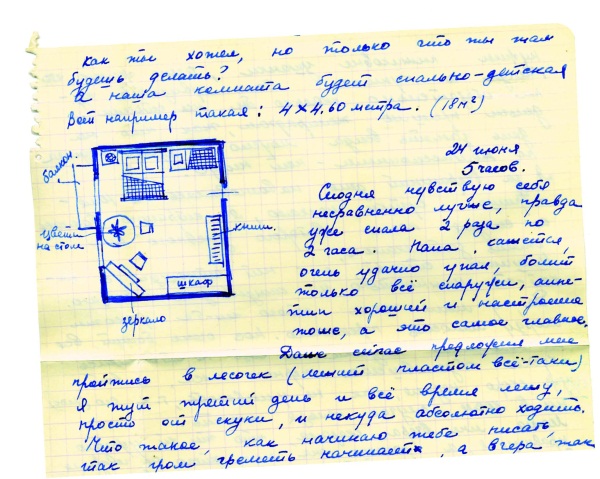 как ты хотел, но только что ты там
будешь делать?
А наша комната будет спально-детская
Вот например такая: 4×4,60 метра. (18м²)
24 июня
5 часов.
балкон.
цветы
на столе
книги.
шкаф
зеркало
Сегодня чувствую себя
несравненно лучше, правда
уже спала 2 раза по
2 часа. Папа, кажется,
очень удачно упал, болит
только всё снаружи, аппе-
тит хороший и настроение
тоже, а это самое главное.
Даже сейчас предложил мне
пройтись в лесочек (лежит пластом всё-таки)
Я тут третий день и всё время лежу,
просто от скуки, и некуда абсолютно ходить.
Что такое, как начинаю тебе писать,
так гром греметь начинает, а вчера так